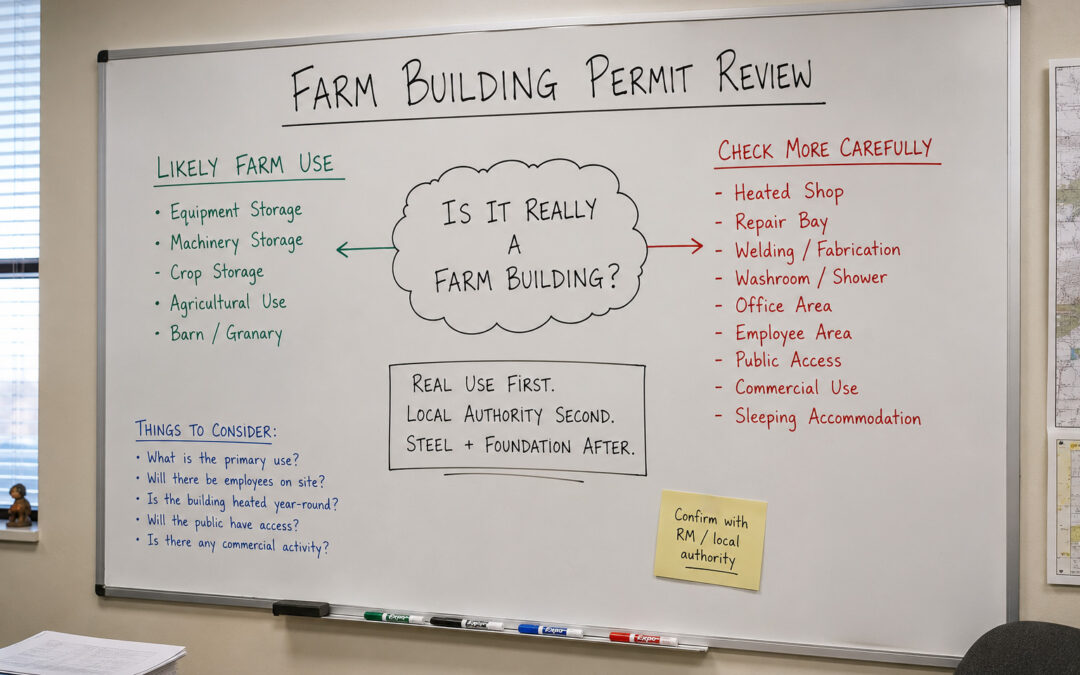 FARM BUILDING PERMIT REVIEW
LIKELY FARM USE
• Equipment Storage
• Machinery Storage
- Crop Storage
• Agricultural Use
• Barn / Granary
IS IT REALLY
A
FARM BUILDING?
CHECK MORE CAREFULLY
- Heated Shop
- Repair Bay
- Welding / Fabrication
- Washroom / Shower
- Office Area
- Employee Area
- Public Access
- Commercial Use
- Sleeping Accommodation
REAL USE FIRST.
LOCAL AUTHORITY SECOND.
STEEL + FOUNDATION AFTER.
THINGS TO CONSIDER:
• What is the primary use?
• Will there be employees on site?
• Is the building heated year-round?
• Will the public have access?
• Is there any commercial activity?
Confirm with
RM / local
authority
Expo
Expo
Expo
Expo